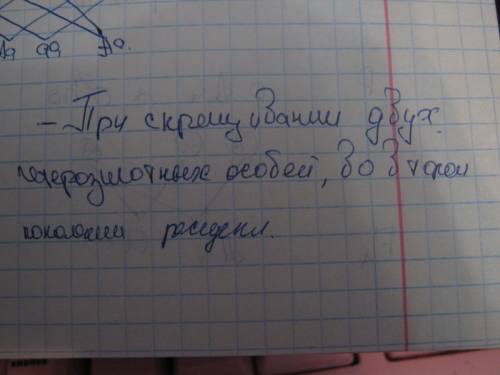 Aa aa Aa.
- При скрещивании двух
гетерозиготных особей, во втором
поколении расщепл.